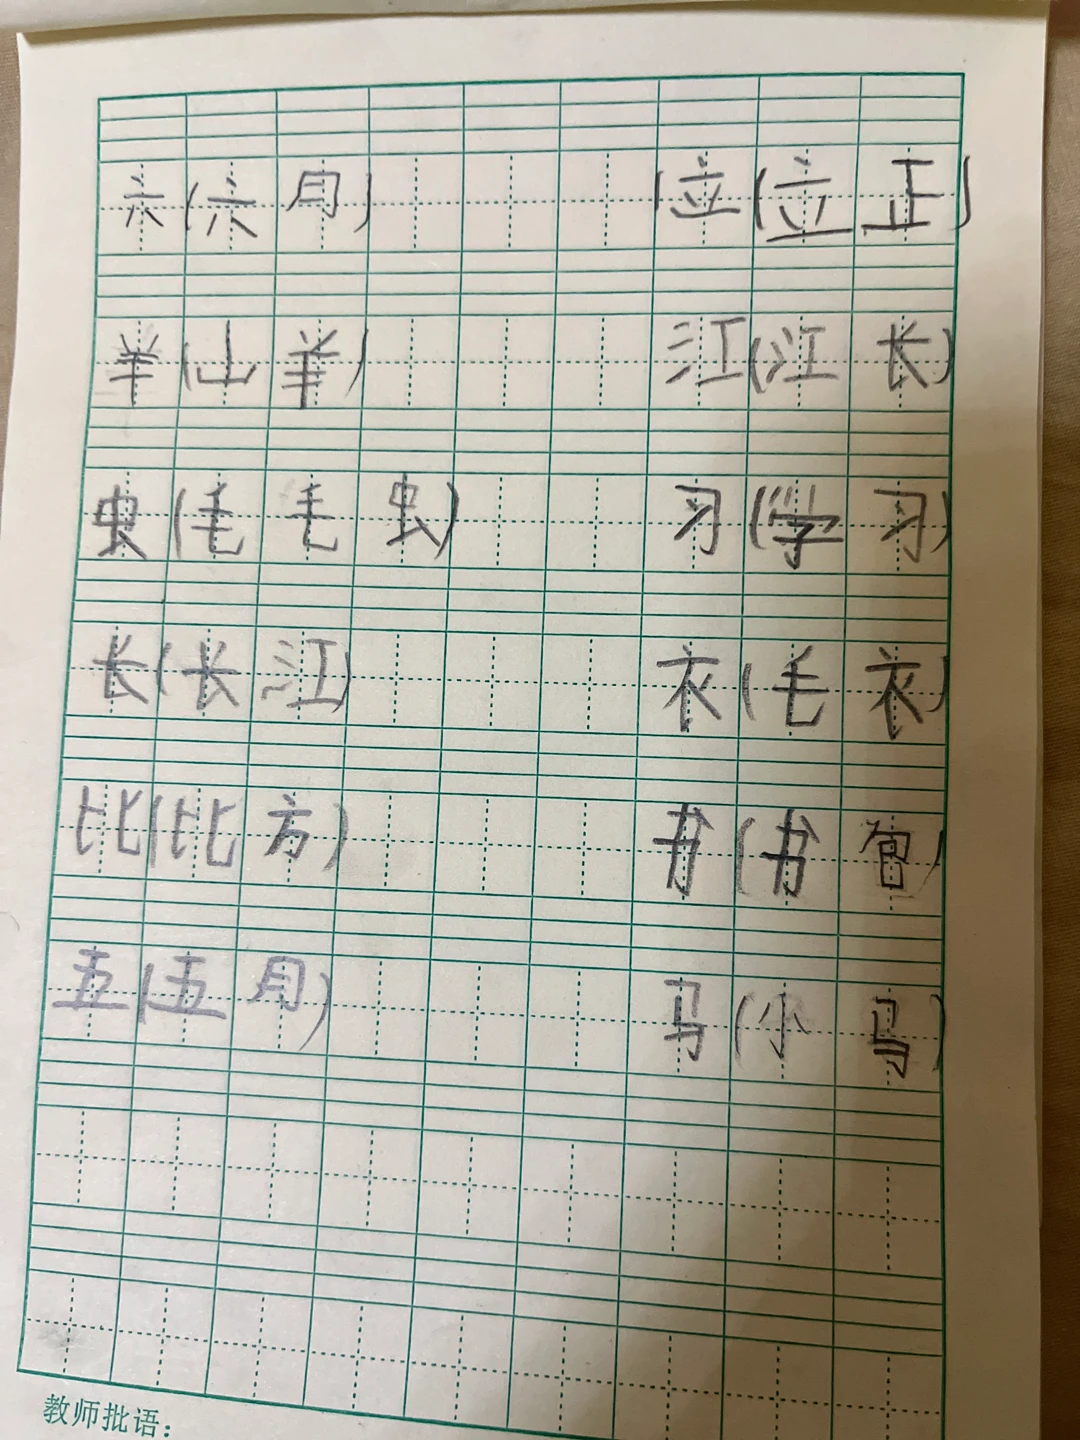 六(六月) 立(立正)
羊(山羊) 江(江长)
虫(毛毛虫) 习(学习)
长(长江) 衣(毛衣)
比(比方) 书(书包)
五(五月) 马(小马)
教师批语：